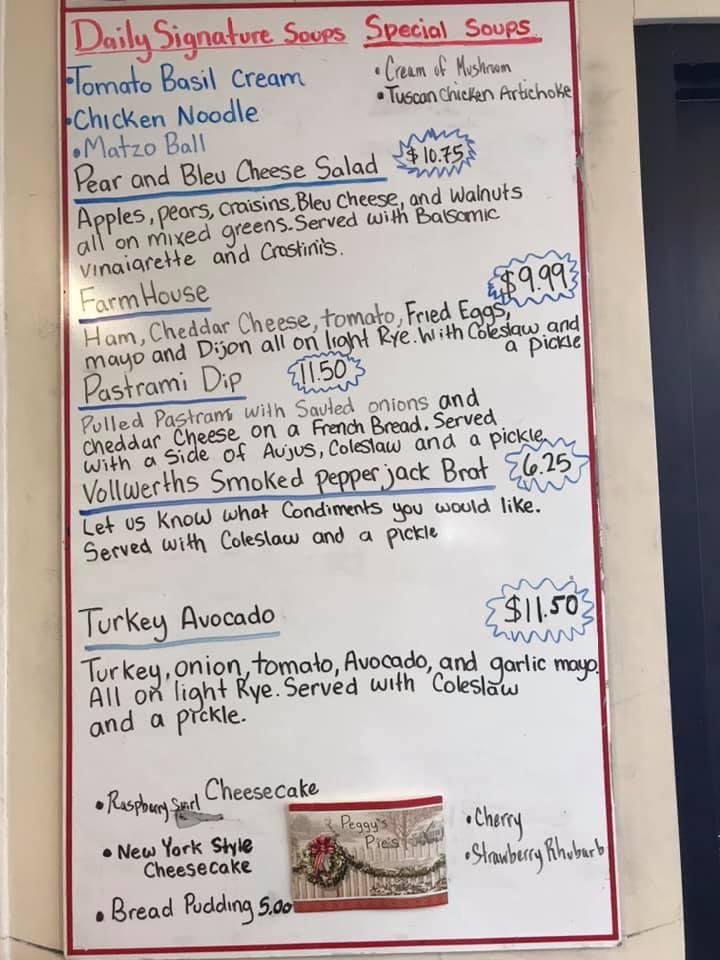 Daily Signature Soups
• Tomato Basil Cream
• Chicken Noodle
• Matzo Ball
Special Soups
• Cream of Mushroom
• Tuscan Chicken Artichoke
Pear and Bleu Cheese Salad $10.75
Apples, pears, Craisins, Bleu Cheese, and Walnuts
all on mixed greens. Served with Balsamic
vinaigrette and Crostini's.
Farm House $9.99
Ham, Cheddar Cheese, tomato, Fried Eggs,
mayo and Dijon all on light Rye. With Coleslaw and
a pickle
Pastrami Dip 11.50
Pulled Pastrami with Sauted onions and
Cheddar Cheese on a French Bread. Served
with a Side of Aujus, Coleslaw and a pickle.
Vollwerths Smoked pepperjack Brat 6.25
Let us know what Condiments you would like.
Served with Coleslaw and a pickle
Turkey Avocado $11.50
Turkey, onion, tomato, Avocado, and garlic mayo.
All on light Rye. Served with Coleslaw
and a pickle.
• Raspberry Swirl Cheesecake
• New York Style
Cheesecake
• Bread Pudding 5.00
Peggy's
Pie's
• Cherry
• Strawberry Rhubarb